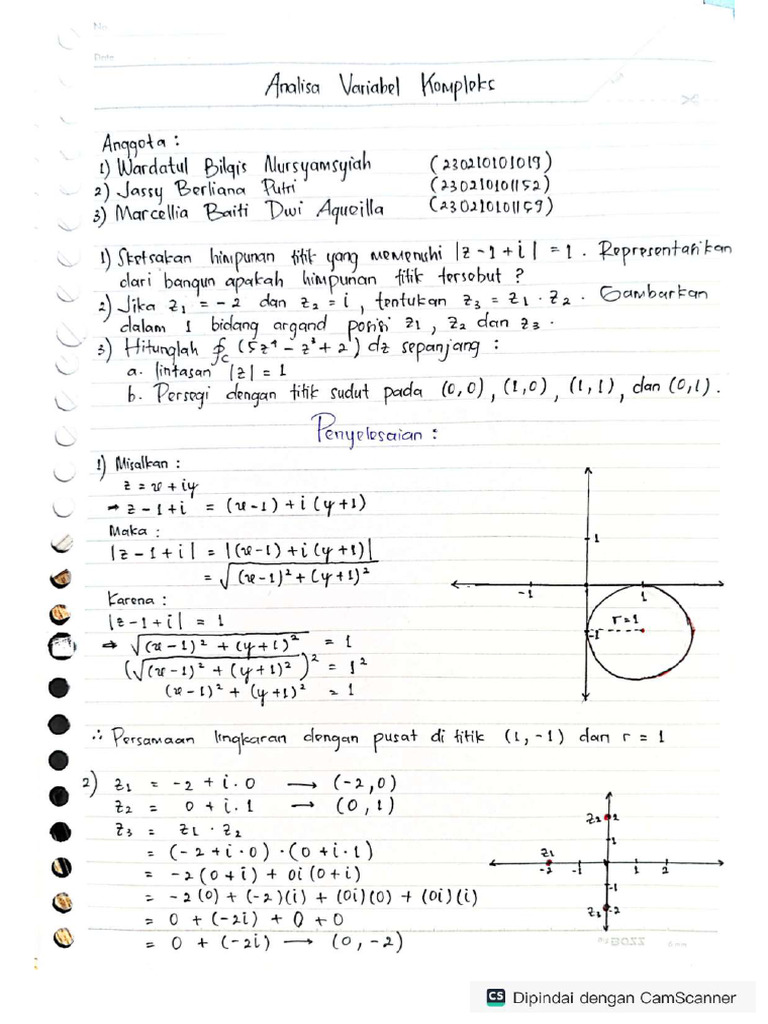 No.
Date
Analisa Variabel Kompleks
Anggota :
1) Wardatul Bilqis Nursyamsyiah (230210101019)
2) Jassy Berliana Putri (230210101152)
3) Marcellia Baiti Dwi Aqueilla (230210101159)
1) Sketsakan himpunan titik yang memenuhi |z - 1 + i| = 1 . Representatikan
dari bangun apakah himpunan titik tersebut ?
2) Jika z₁ = -2 dan z₂ = i , tentukan z₃ = z₁ . z₂ . Gambarkan
dalam 1 bidang argand posisi z₁ , z₂ dan z₃ .
3) Hitunglah ∮c (5z⁴ - z³ + 2) dz sepanjang :
a. lintasan |z| = 1
b. Persegi dengan titik sudut pada (0,0) , (1,0) , (1,1) , dan (0,1) .
Penyelesaian :
1) Misalkan :
z = x + iy
→ z - 1 + i = (x-1) + i (y+1)
Maka :
|z - 1 + i| = |(x-1) + i (y+1)|
= √(x-1)² + (y+1)²
Karena :
|z - 1 + i| = 1
→ √(x-1)² + (y+1)² = 1
(√(x-1)² + (y+1)²)² = 1²
(x-1)² + (y+1)² = 1
1
-1 1
-1 r=1
∴ Persamaan lingkaran dengan pusat di titik (1,-1) dan r = 1
2) z₁ = -2 + i . 0 → (-2,0)
z₂ = 0 + i . 1 → (0,1)
z₃ = z₁ . z₂
= (-2 + i . 0) . (0 + i . 1)
= -2 (0 + i) + 0i (0 + i)
= -2 (0) + (-2)(i) + (0i)(0) + (0i)(i)
= 0 + (-2i) + 0 + 0
= 0 + (-2i) → (0,-2)
z₂ 2
1
z₁
-2 -1 1 2
-1
z₃ -2
BOSS
CS Dipindai dengan CamScanner